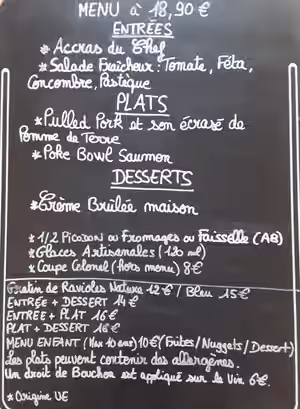 MENU à 18,90 €
ENTRÉES
* Accras du Chef
* Salade Fraîcheur : Tomate, Féta,
Concombre, Pastèque
PLATS
* Pulled Pork et son écrasé de
Pomme de Terre
* Poke Bowl Saumon
DESSERTS
* Crème Brûlée maison
* 1/2 Picodon ou Fromages ou Faisselle (AB)
* Glaces Artisanales (120 ml)
* Coupe Colonel (hors menu) 8€
Gratin de Ravioles Nature 12€ / Bleu 15€
ENTRÉE + DESSERT 14€
ENTREE + PLAT 16€
PLAT + DESSERT 16€
MENU ENFANT (Max 10 ans) 10€ (Frites/Nuggets/Dessert)
Les plats peuvent contenir des allergènes.
Un droit de Bouchon est appliqué sur le Vin 6€.
* Origine UE